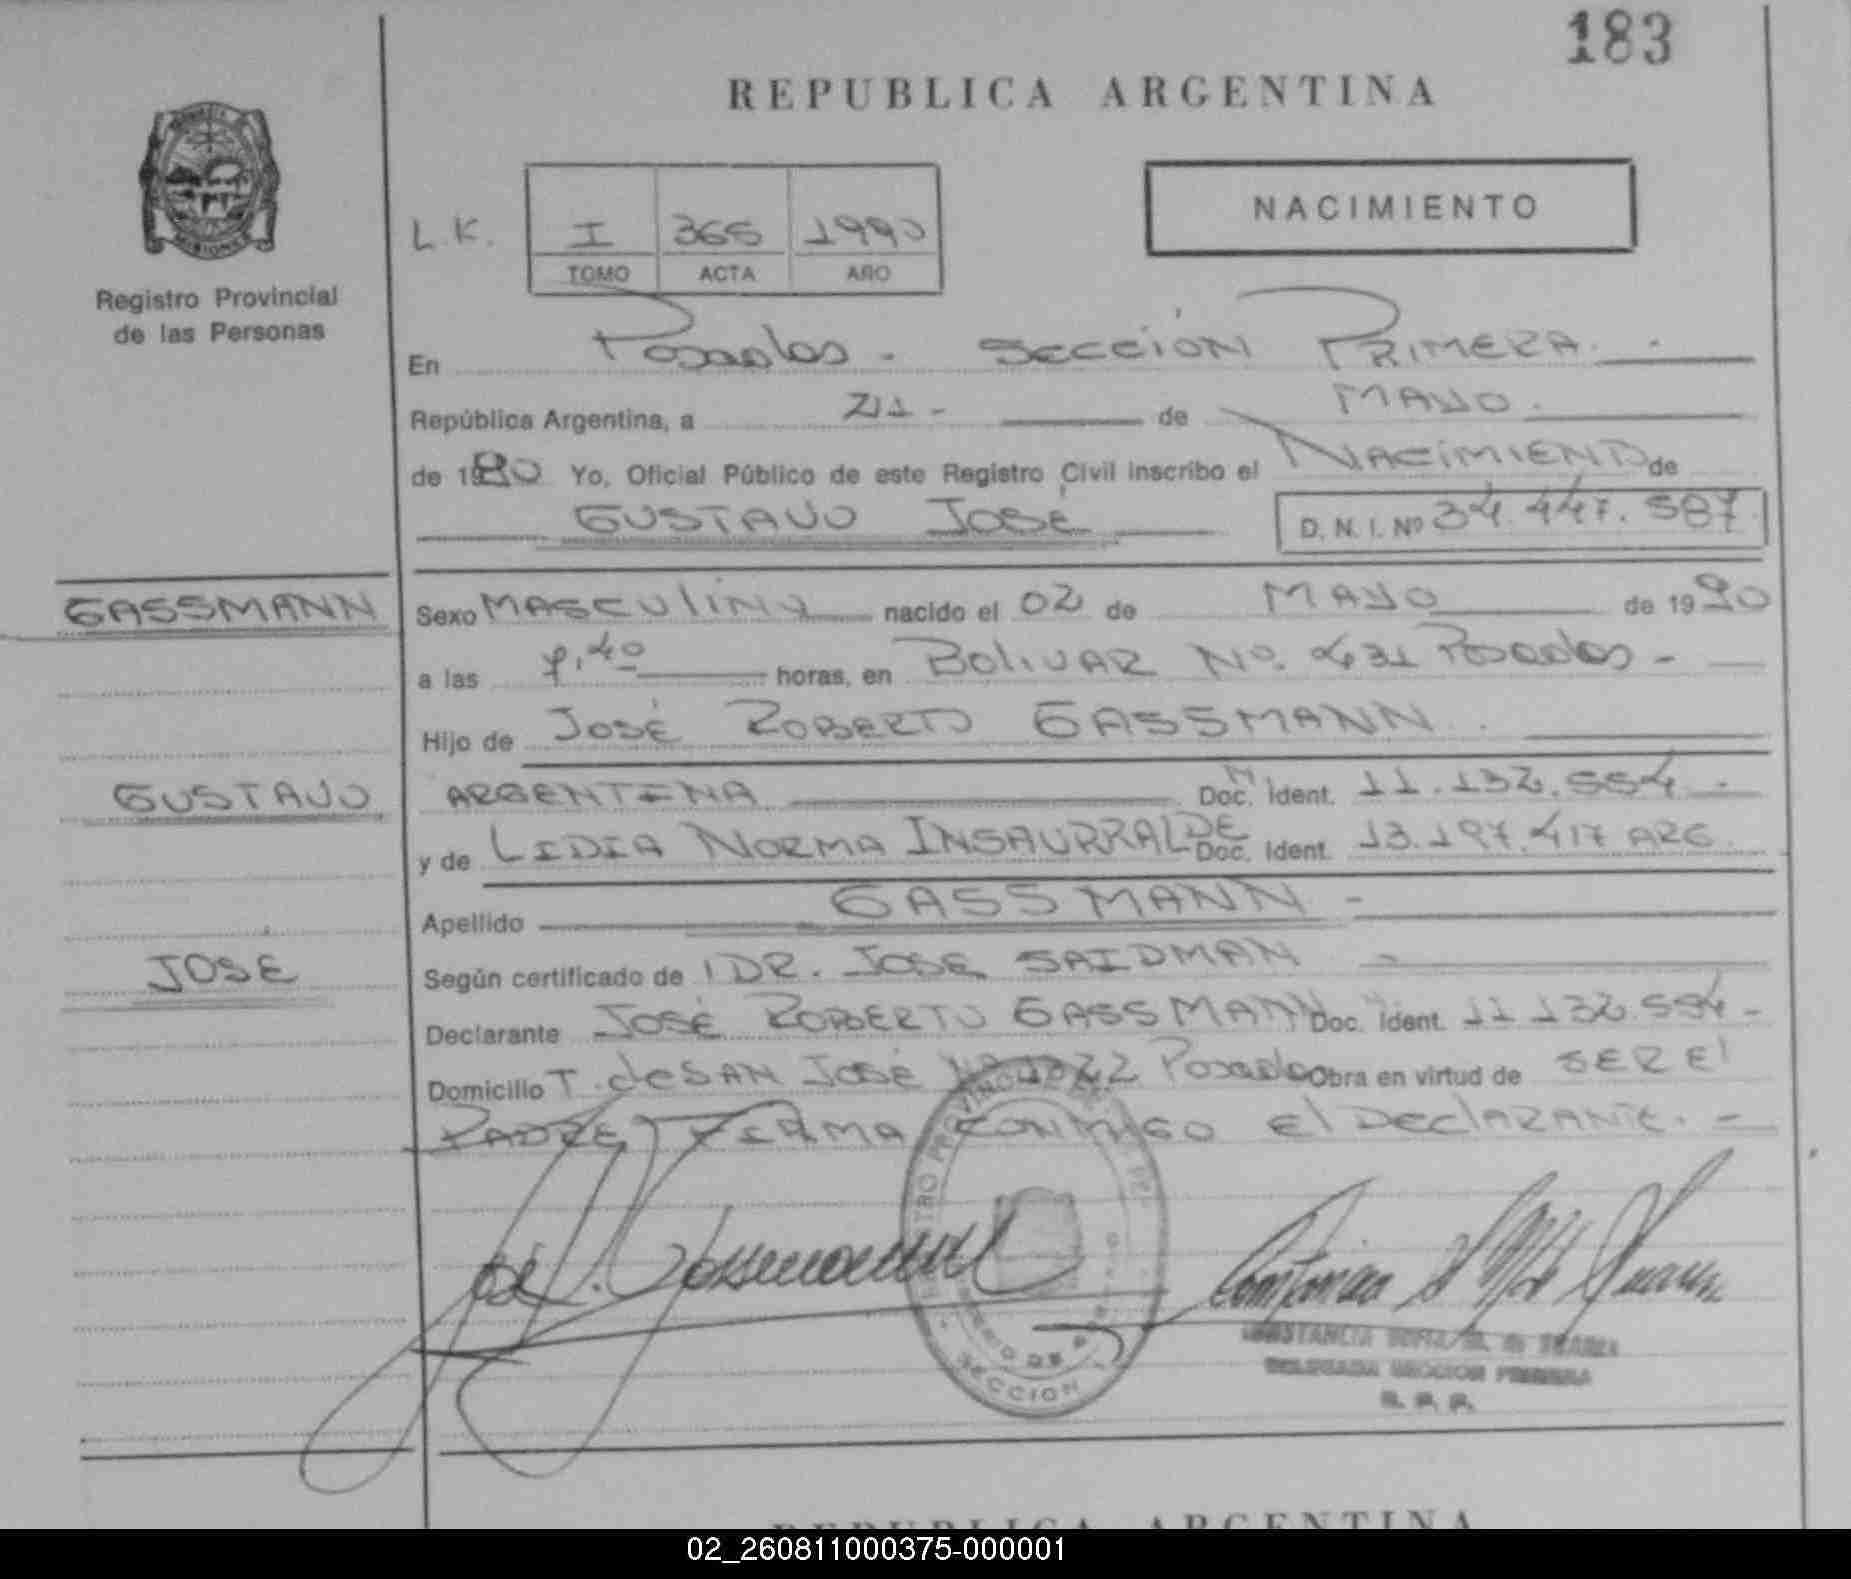 183
REPUBLICA ARGENTINA
MISIONES
Registro Provincial
de las Personas
L.K. I 365 1990
TOMO ACTA AÑO
NACIMIENTO
En Posadas - SECCIÓN PRIMERA.
República Argentina, a 21 - de MAYO.
de 1990 Yo, Oficial Público de este Registro Civil inscribo el NACIMIENTO de
GUSTAVO JOSÉ D. N. I. Nº 34.447.587
GASSMANN
Sexo MASCULINO nacido el 02 de MAYO de 1990
a las 7,40 horas, en BOLIVAR Nº. 431 Posadas -
Hijo de JOSÉ ROBERTO GASSMANN.
GUSTAVO
ARGENTINA Doc. Ident. 11.132.554 -
y de LIDIA NORMA INSAURRALDE Doc. Ident. 13.197.417 ARG.
Apellido GASSMANN -
JOSÉ
Según certificado de DR. JOSE SAIDMAN -
Declarante JOSÉ ROBERTO GASSMANN Doc. Ident. 11 132.554 -
Domicilio T. de SAN JOSÉ Posadas Obra en virtud de SER El
PADRE FIRMA CONMIGO El DEClARANTE. -
SECCION
DELEGADA SECCION PRIMERA
R. P. P.
REPUBLICA ARGENTINA
02_260811000375-000001